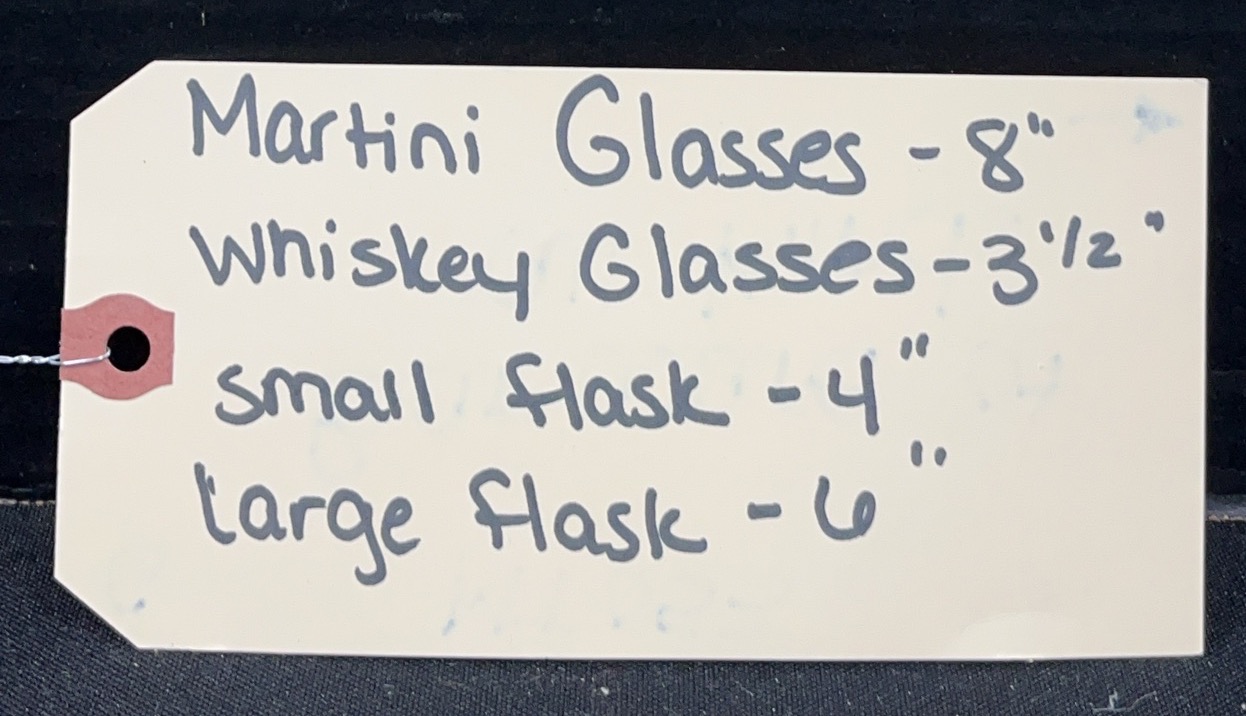 Martini Glasses - 8"
Whiskey Glasses - 3 1/2 "
small flask - 4"
large flask - 6"